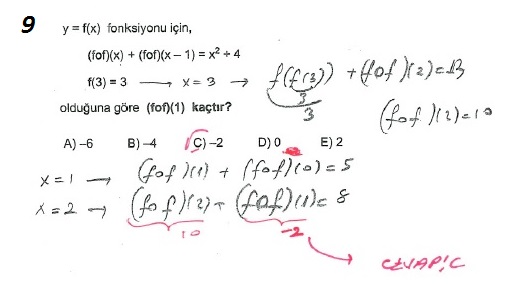 9 y = f(x) fonksiyonu için,
(fof)(x) + (fof)(x – 1) = x² + 4
f(3) = 3 → x = 3 → f(f(3)) + (fof)(2) = 13
3
3
(fof)(2) = 10
olduğuna göre (fof)(1) kaçtır?
A) –6 B) –4 C) –2 D) 0 E) 2
x = 1 → (fof)(1) + (fof)(0) = 5
x = 2 → (fof)(2) + (fof)(1) = 8
10 -2
CEVAP: C